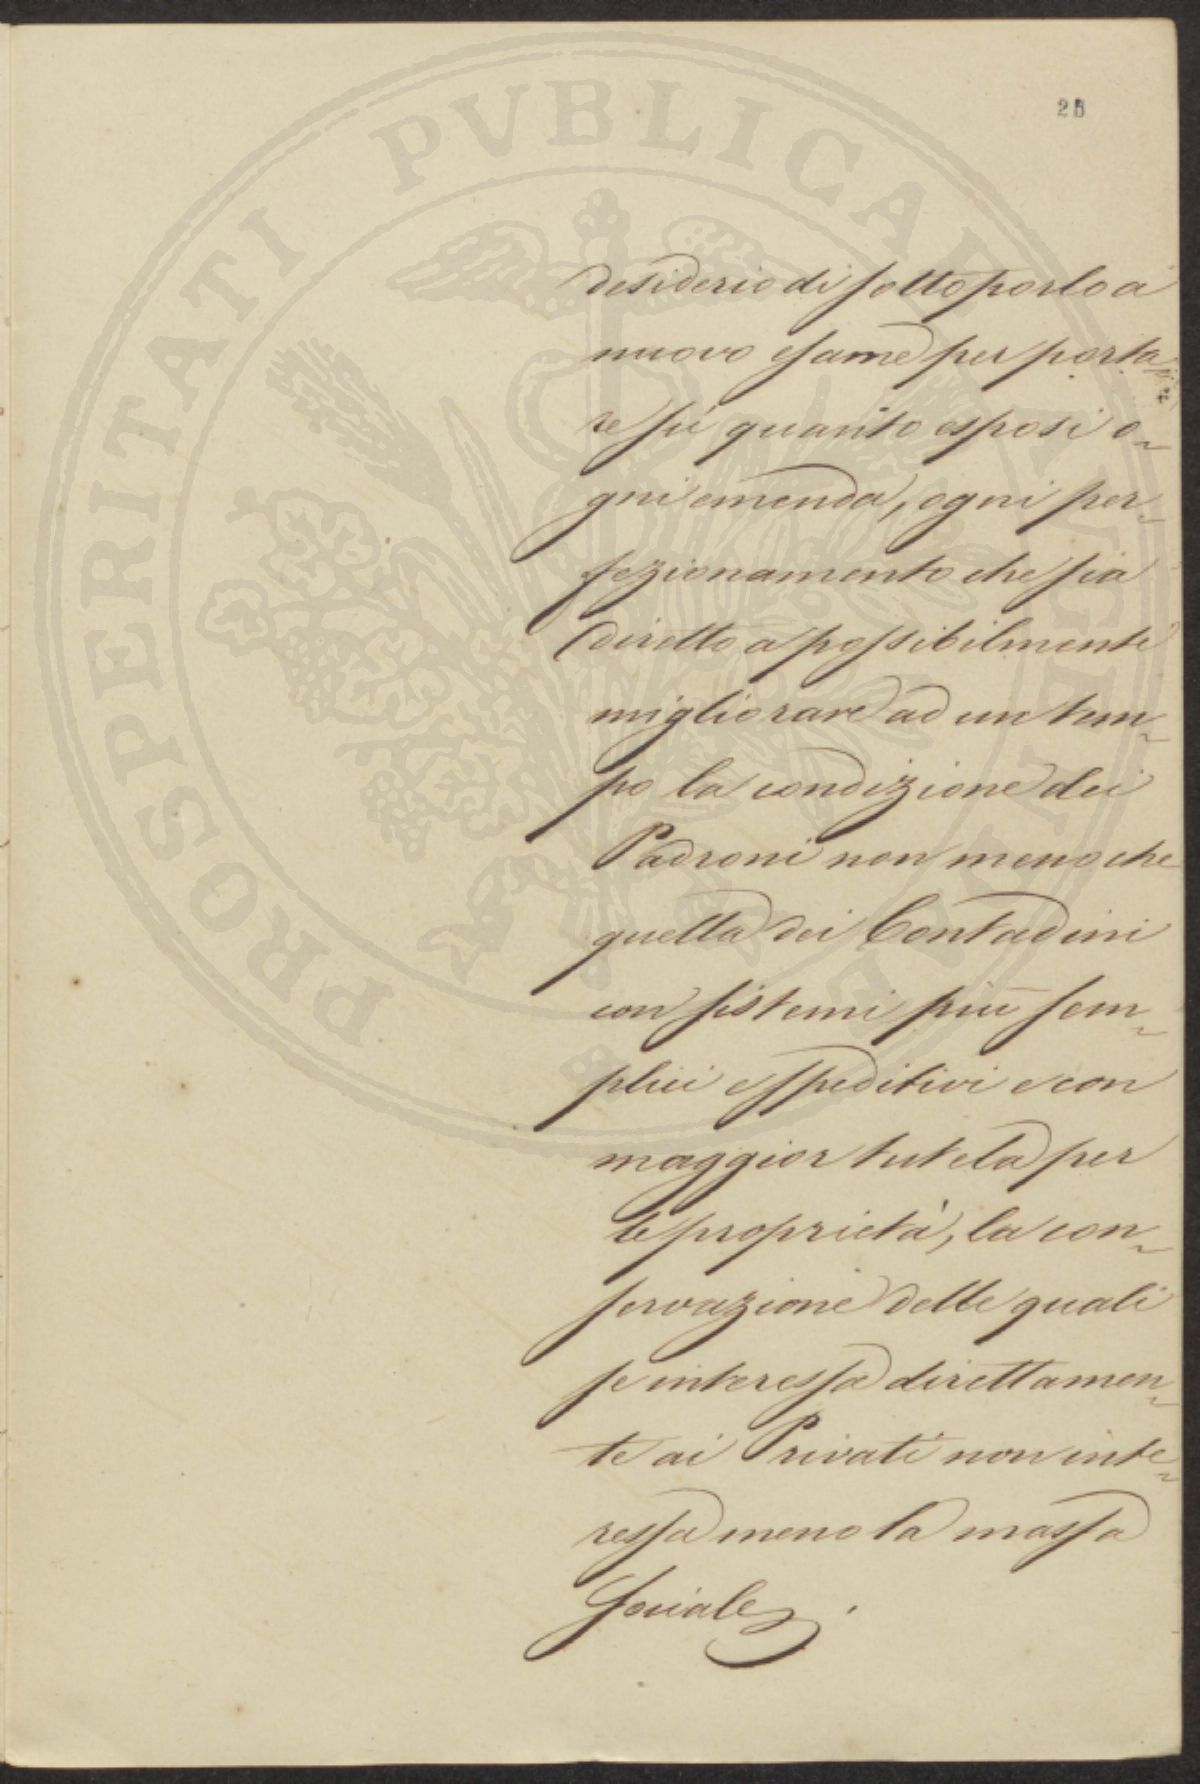 PROSPERITATI PVBLICAE AVGENDAE
desiderio di sottoporlo a
nuovo esame per porta
re sù quanto esposi o-
gni emenda, ogni per-
fezionamento che sia
diretto a possibilmente
migliorare ad un tem-
po la condizione dei
Padroni non meno che
quella dei Contadini
con sistemi più sem-
plici e speditivi e con
maggior tutela per
le proprietà, la con-
servazione delle quali
se interessa direttamen-
te ai Privati non inte-
ressa meno la massa
Sociale.